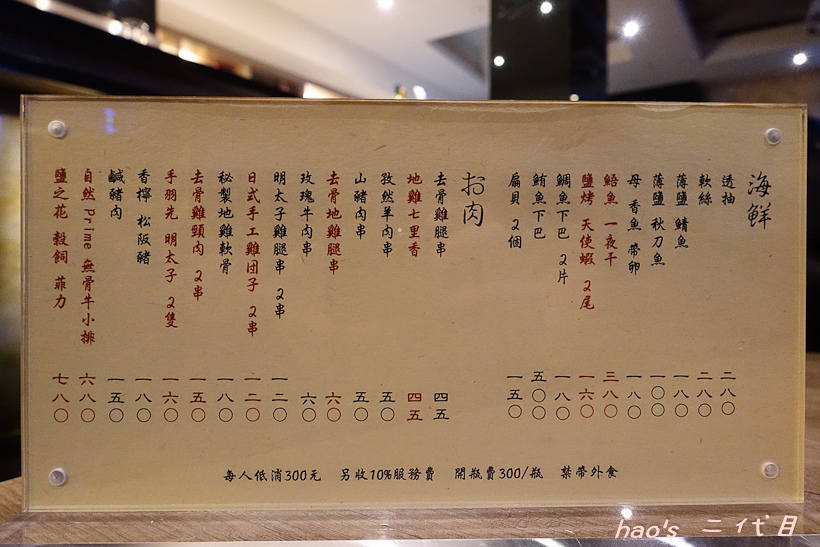 海鮮
透抽 二八〇
軟絲 二八〇
薄鹽 鯖魚 一八〇
薄鹽 秋刀魚 一〇〇
母 香魚 帶卵 一八〇
鮯魚 一夜干 三八〇
鹽烤 天使蝦 2尾 一六〇
鯛魚下巴 2片 一八〇
鮪魚下巴 五〇〇
扇貝 2個 一五〇
お肉
去骨雞腿串 四五
地雞七里香 四五
孜然羊肉串 五〇
山豬肉串 五〇
去骨地雞腿串 六〇
玫瑰牛肉串 六〇
明太子雞腿串 2串 一二〇
日式手工雞団子 2串 一二〇
秘製地雞軟骨 一八〇
去骨雞頸肉 2串 一五〇
手羽先 明太子 2隻 一六〇
香檸 松阪豬 一八〇
鹹豬肉 一五〇
自然 Prime 無骨牛小排 六八〇
鹽之花 穀飼 菲力 七八〇
每人低消300元 另收10%服務費 開瓶費300/瓶 禁帶外食
hao's 二代目